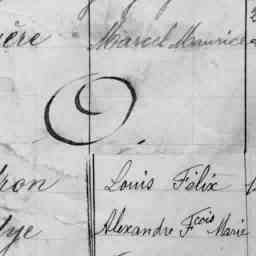 ère Marcel Maurice
O.
ron Louis Félix
ye Alexandre Fcois Marie